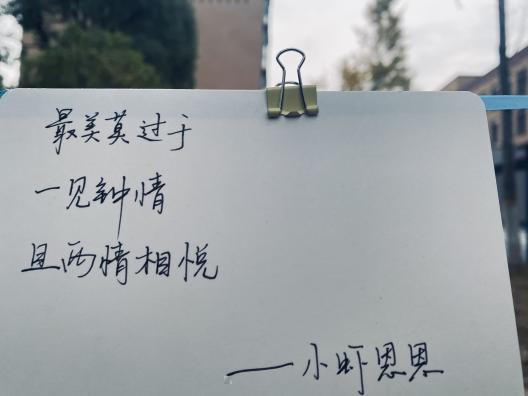 最美莫过于
一见钟情
且两情相悦
——小虾恩恩